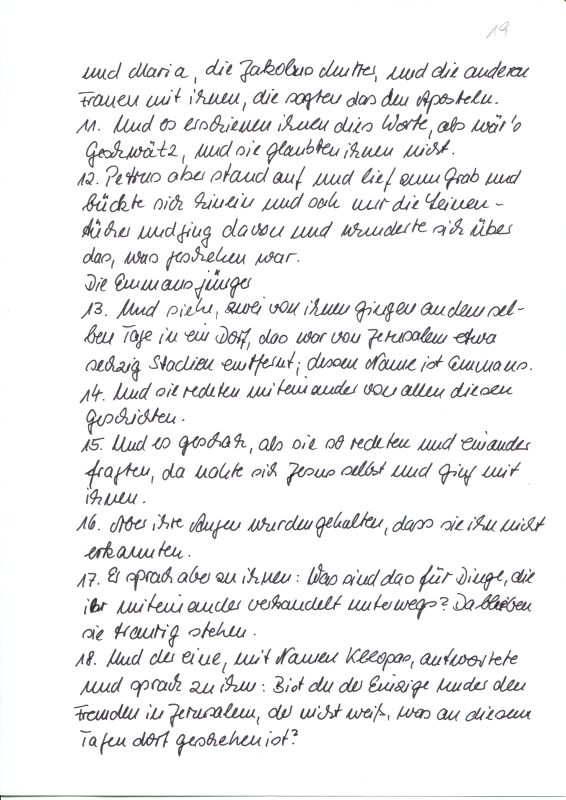 19
und Maria, die Jakobus Mutter, und die anderen
Frauen mit ihnen, die sagten das den Aposteln.
11. Und es erschienen ihnen dies Worte, als wär's
Geschwätz, und sie glaubten ihnen nicht.
12. Petrus aber stand auf und lief zum Grab und
bückte sich hinein und sah nur die Leinen-
tücher und ging davon und wunderte sich über
das, was geschehen war.
Die Emmausjünger
13. Und siehe, zwei von ihnen gingen an dem sel-
ben Tage in ein Dorf, das war von Jerusalem etwa
sechzig Stadien entfernt; dessen Name ist Emmaus.
14. Und sie redeten miteinander von allen diesen
Geschichten.
15. Und es geschah, als sie so redeten und einander
fragten, da nahte sich Jesus selbst und ging mit
ihnen.
16. Aber ihre Augen wurden gehalten, dass sie ihn nicht
erkannten.
17. Er sprach aber zu ihnen: Was sind das für Dinge, die
ihr miteinander verhandelt unterwegs? Da blieben
sie traurig stehen.
18. Und der eine, mit Namen Kleopas, antwortete
und sprach zu ihm: Bist du der Einzige unter den
Fremden in Jerusalem, der nicht weiß, was an diesem
Tagen dort geschehen ist?